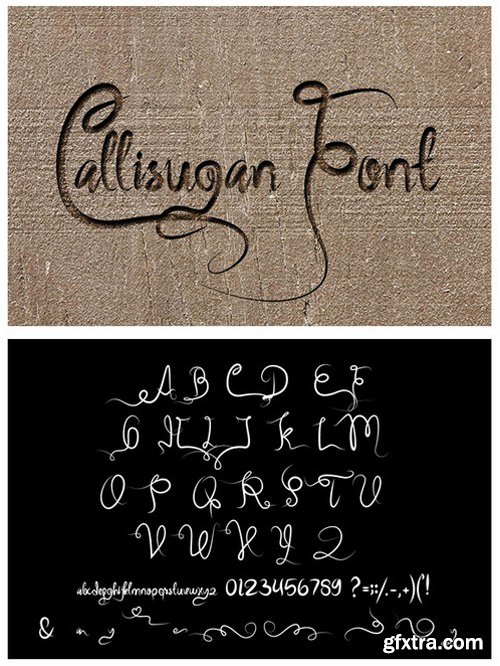 Callisugan Font
A B C D E F
G H I J K L M
O P Q R S T U
V W X Y Z
abcdefghijklmnopqrstuvwxyz 0123456789 ?=:;/.-,+)('!
&
gfxtra.com